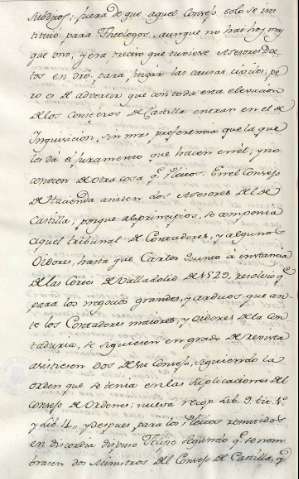 subditos; fuera de que aquel Consejo solo se ins
tituió para Theologos, aunque no hai hoy mas
que uno, y era preciso que tuviese Asesores Doc
tos en dro, para juzgar las causas civiles; pe
ro es de advertir que con toda esta elevacion
de los Consejeros de Castilla entran en el de
Inquisicion, sin mas preferencia que la que
les da el juramento que hacen en el, y no
conocen de otra cosa q.e Pleitos. En el Consejo
de Hacienda asisten dos Asesores del de
Castilla, porque al principio, se componia
aquel tribunal de Contadores, y algunos
Oidores, hasta que Carlos Quinto à instancia
de las Cortes de Valladolid de 1523, resolvió q.e
para los negocios grandes, y arduos que an
te los Contadores maiores, y Oidores de la Con
taduria, se siguiesen en grado de revista
asistiesen dos de su Consejo, siguiendo la
orden que se tenia en las Suplicaciones del
Consejo de Ordenes: nueva recop. Lib. 9. tit. 1.o
y Lei 4. y despues para los Pleitos remitidos
en discordia dispuso Phelipe segundo q.e se nom
brasen dos Ministros del Consejo de Castilla, y